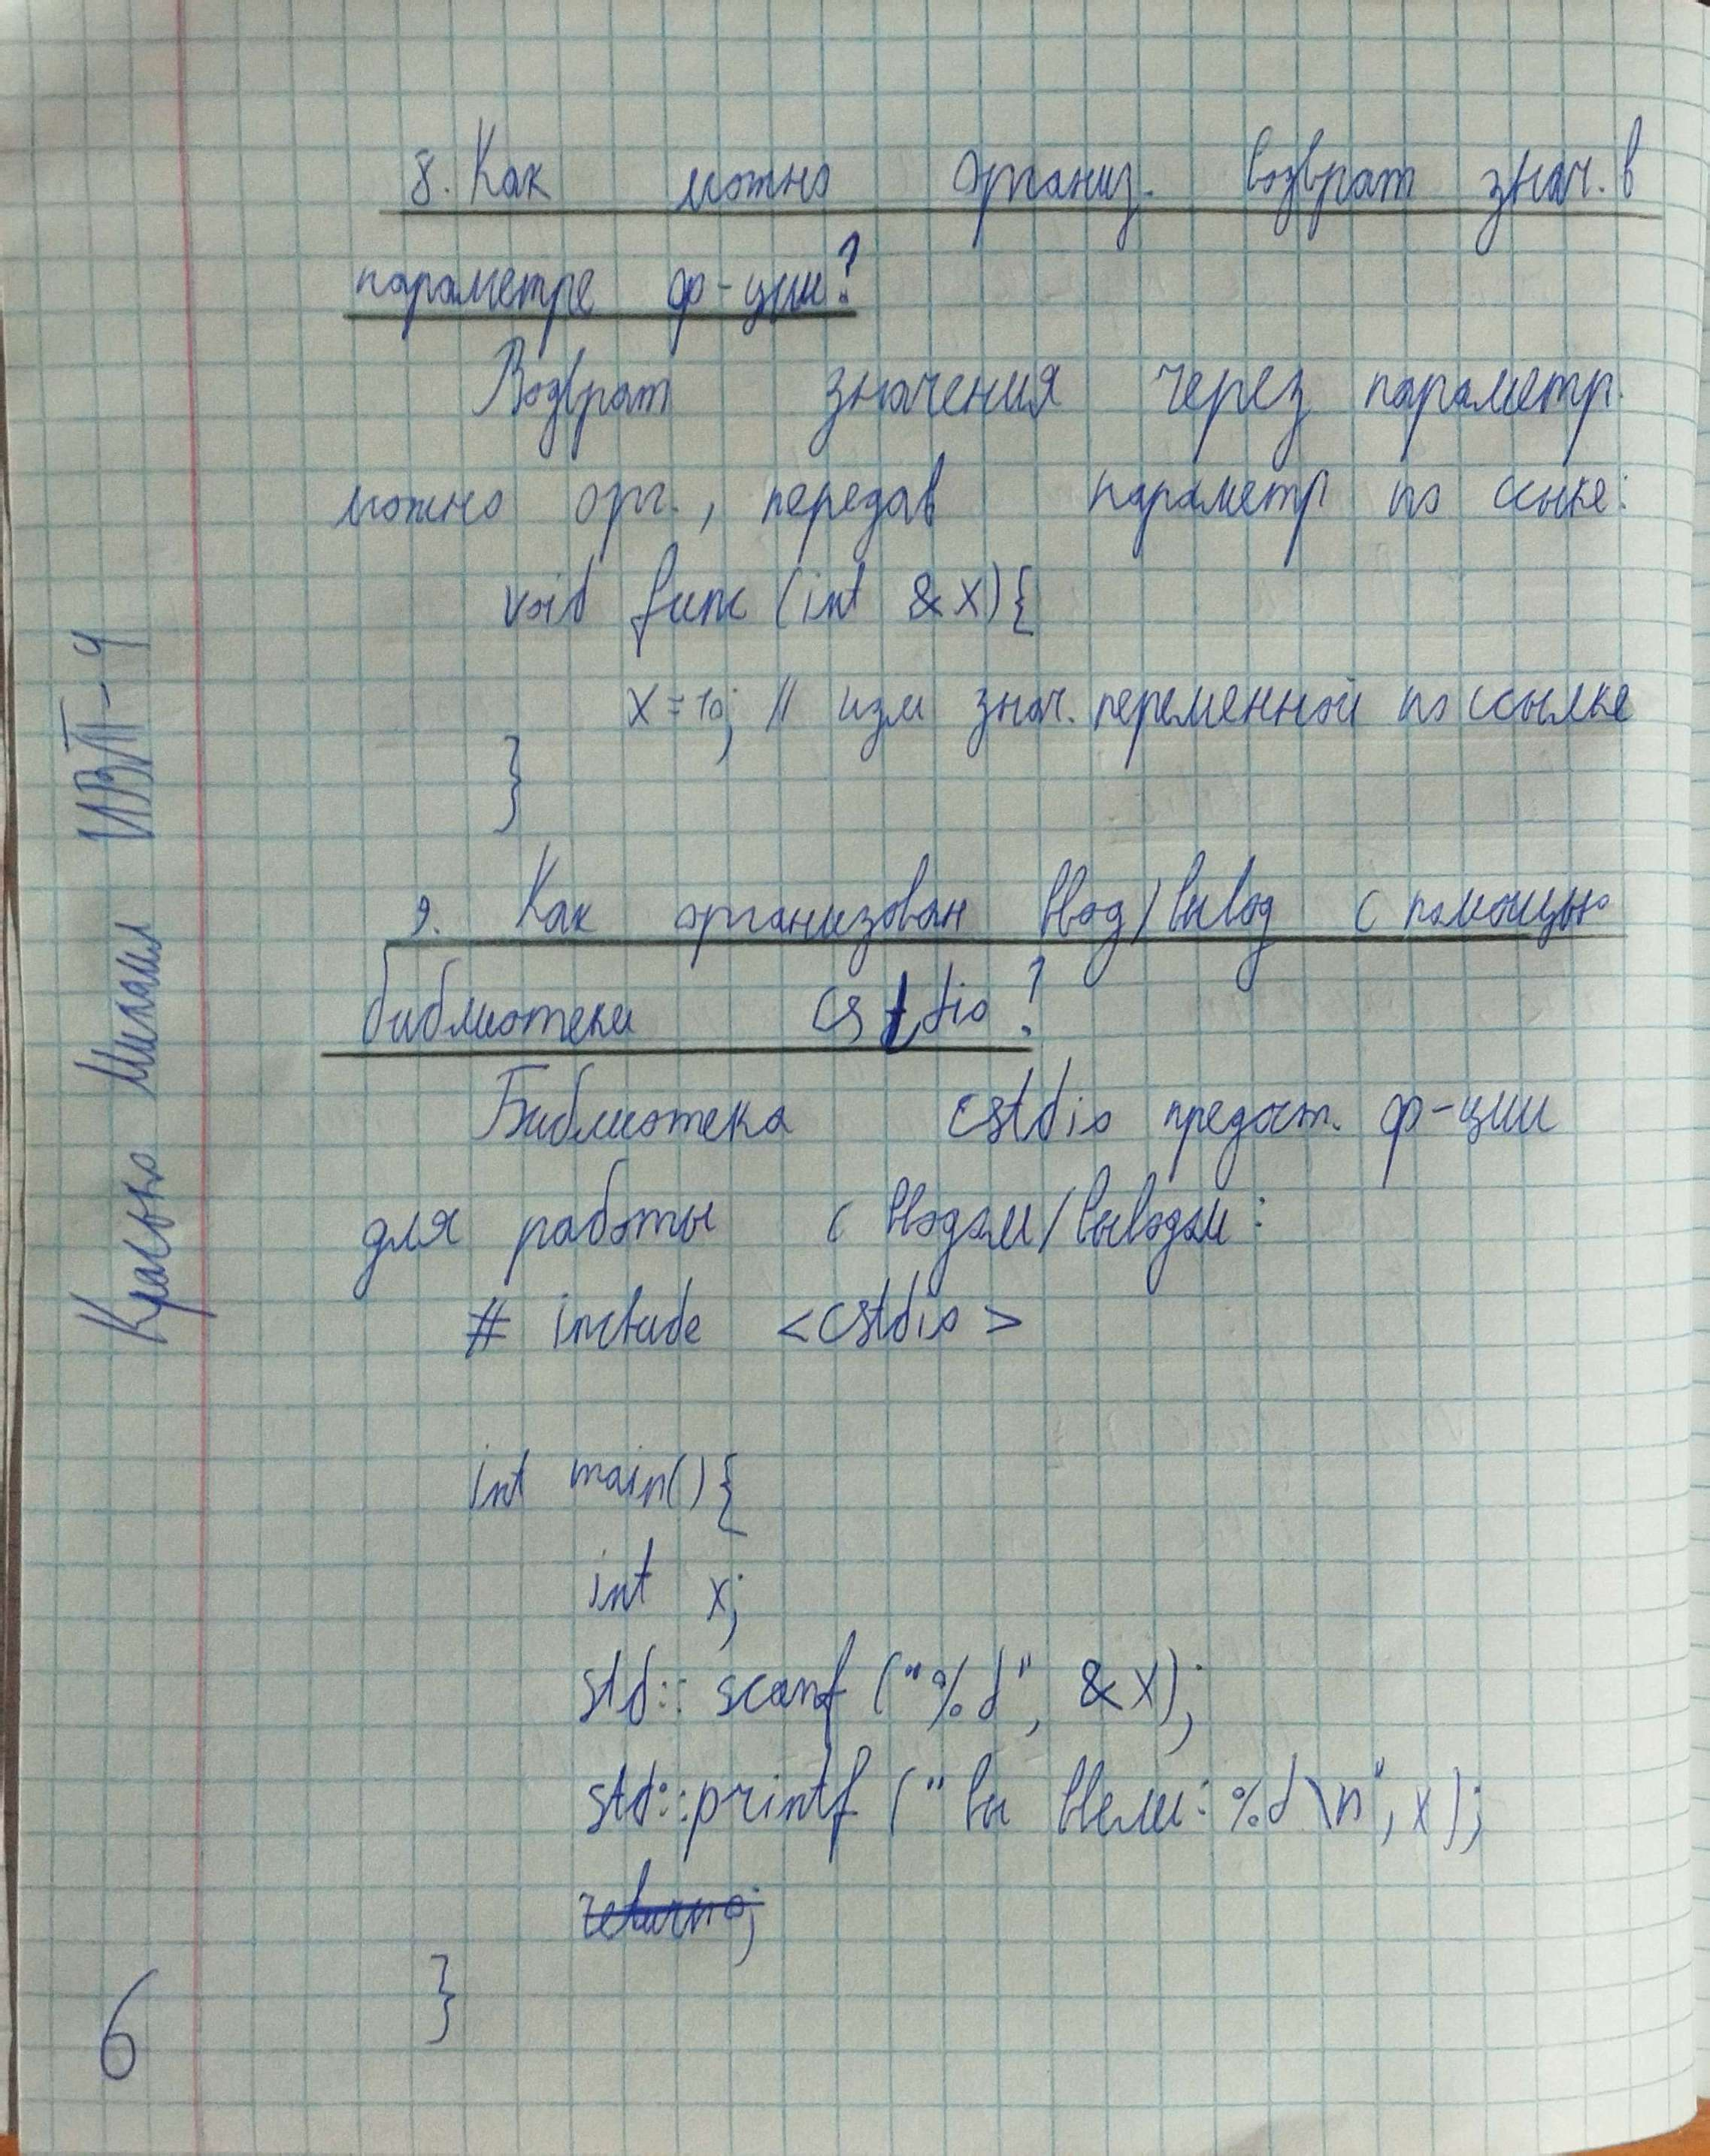 8. Как можно организ. возврат знач. в
параметре ф-ции?
Возврат значения через параметр
можно орг., передав параметр по ссыке:
void func (int &x){
x = 10; // изм знач. переменной по ссылке
}
9. Как организован ввод/вывод с помощью
библиотеки cstdio?
Библиотека cstdio предост. ф-ции
для работы с вводом/выводом:
# include <cstdio>
int main(){
int x;
std:: scanf ("%d", &x);
std::printf ("вы ввели: %d\n", x);
return 0;
}
Михаил ИВТ-4
6